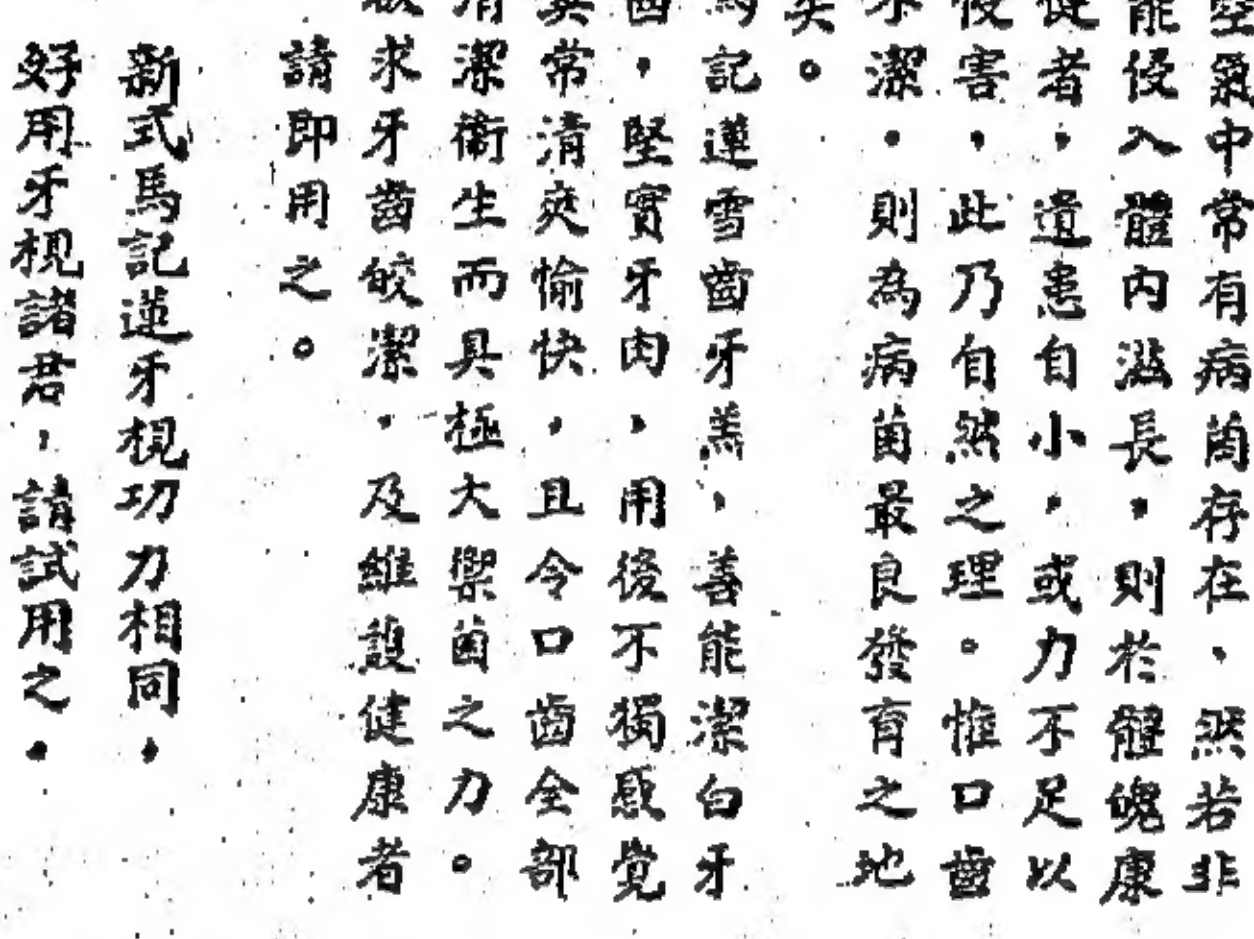 空氣中常有病菌存在、然若非
能侵入體內滋長，則於體魄康
健者，遺患自小，或力不足以
侵害，此乃自然之理。惟口齒
不潔，則為病菌最良發育之地
矣。
馬記蓮雪齒牙羔、善能潔白牙
齒，堅實牙肉、用後不獨感覺
異常清爽愉快，且令口齒全部
清潔衞生而具極大禦菌之力。
欲求牙齒皎潔，及維護健康者
請即用之。
新式馬記蓮牙梘功力相同，
好用牙梘諸君，請試用之。